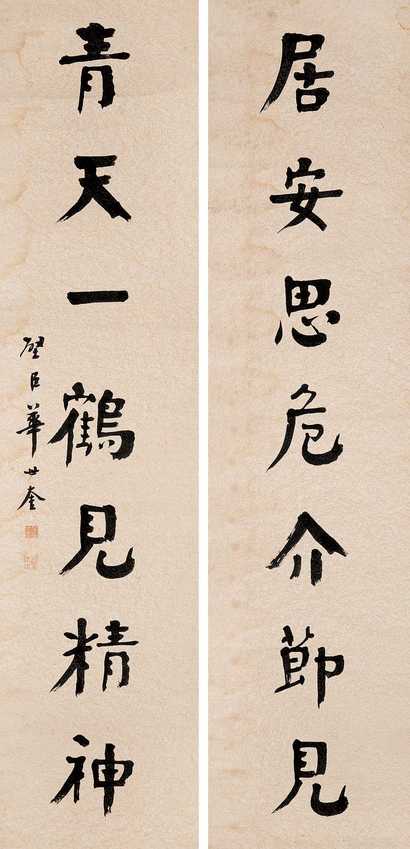 居安思危介節見
青天一鶴見精神
壁臣華世奎